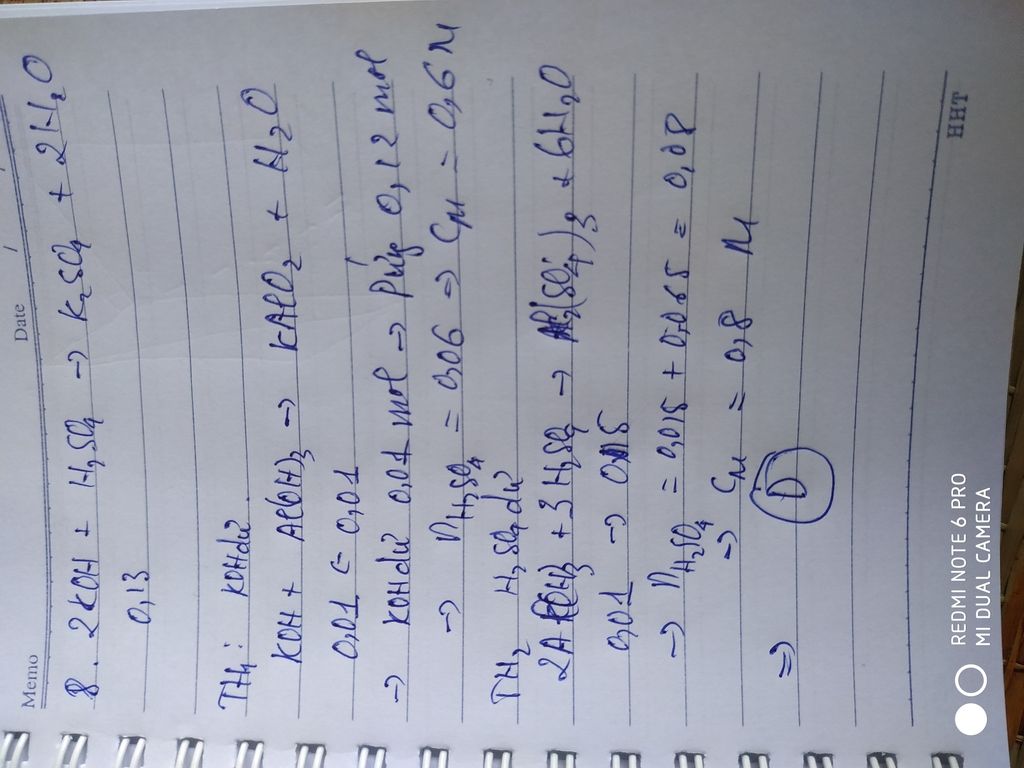 Memo Date / /
8. 2KOH + H₂SO₄ → K₂SO₄ + 2H₂O
0,13
TH₁: KOH dư
KOH + Al(OH)₃ → KAlO₂ + H₂O
0,01 ← 0,01
→ KOH dư 0,01 mol → Pứ 0,12 mol
→ nH₂SO₄ = 0,06 → CM = 0,6M
TH₂ H₂SO₄ dư
2Al(OH)₃ + 3H₂SO₄ → Al₂(SO₄)₃ + 6H₂O
0,01 → 0,015
→ nH₂SO₄ = 0,015 + 0,065 = 0,08
→ CM = 0,8 M
⇒ D
HHT
REDMI NOTE 6 PRO
MI DUAL CAMERA